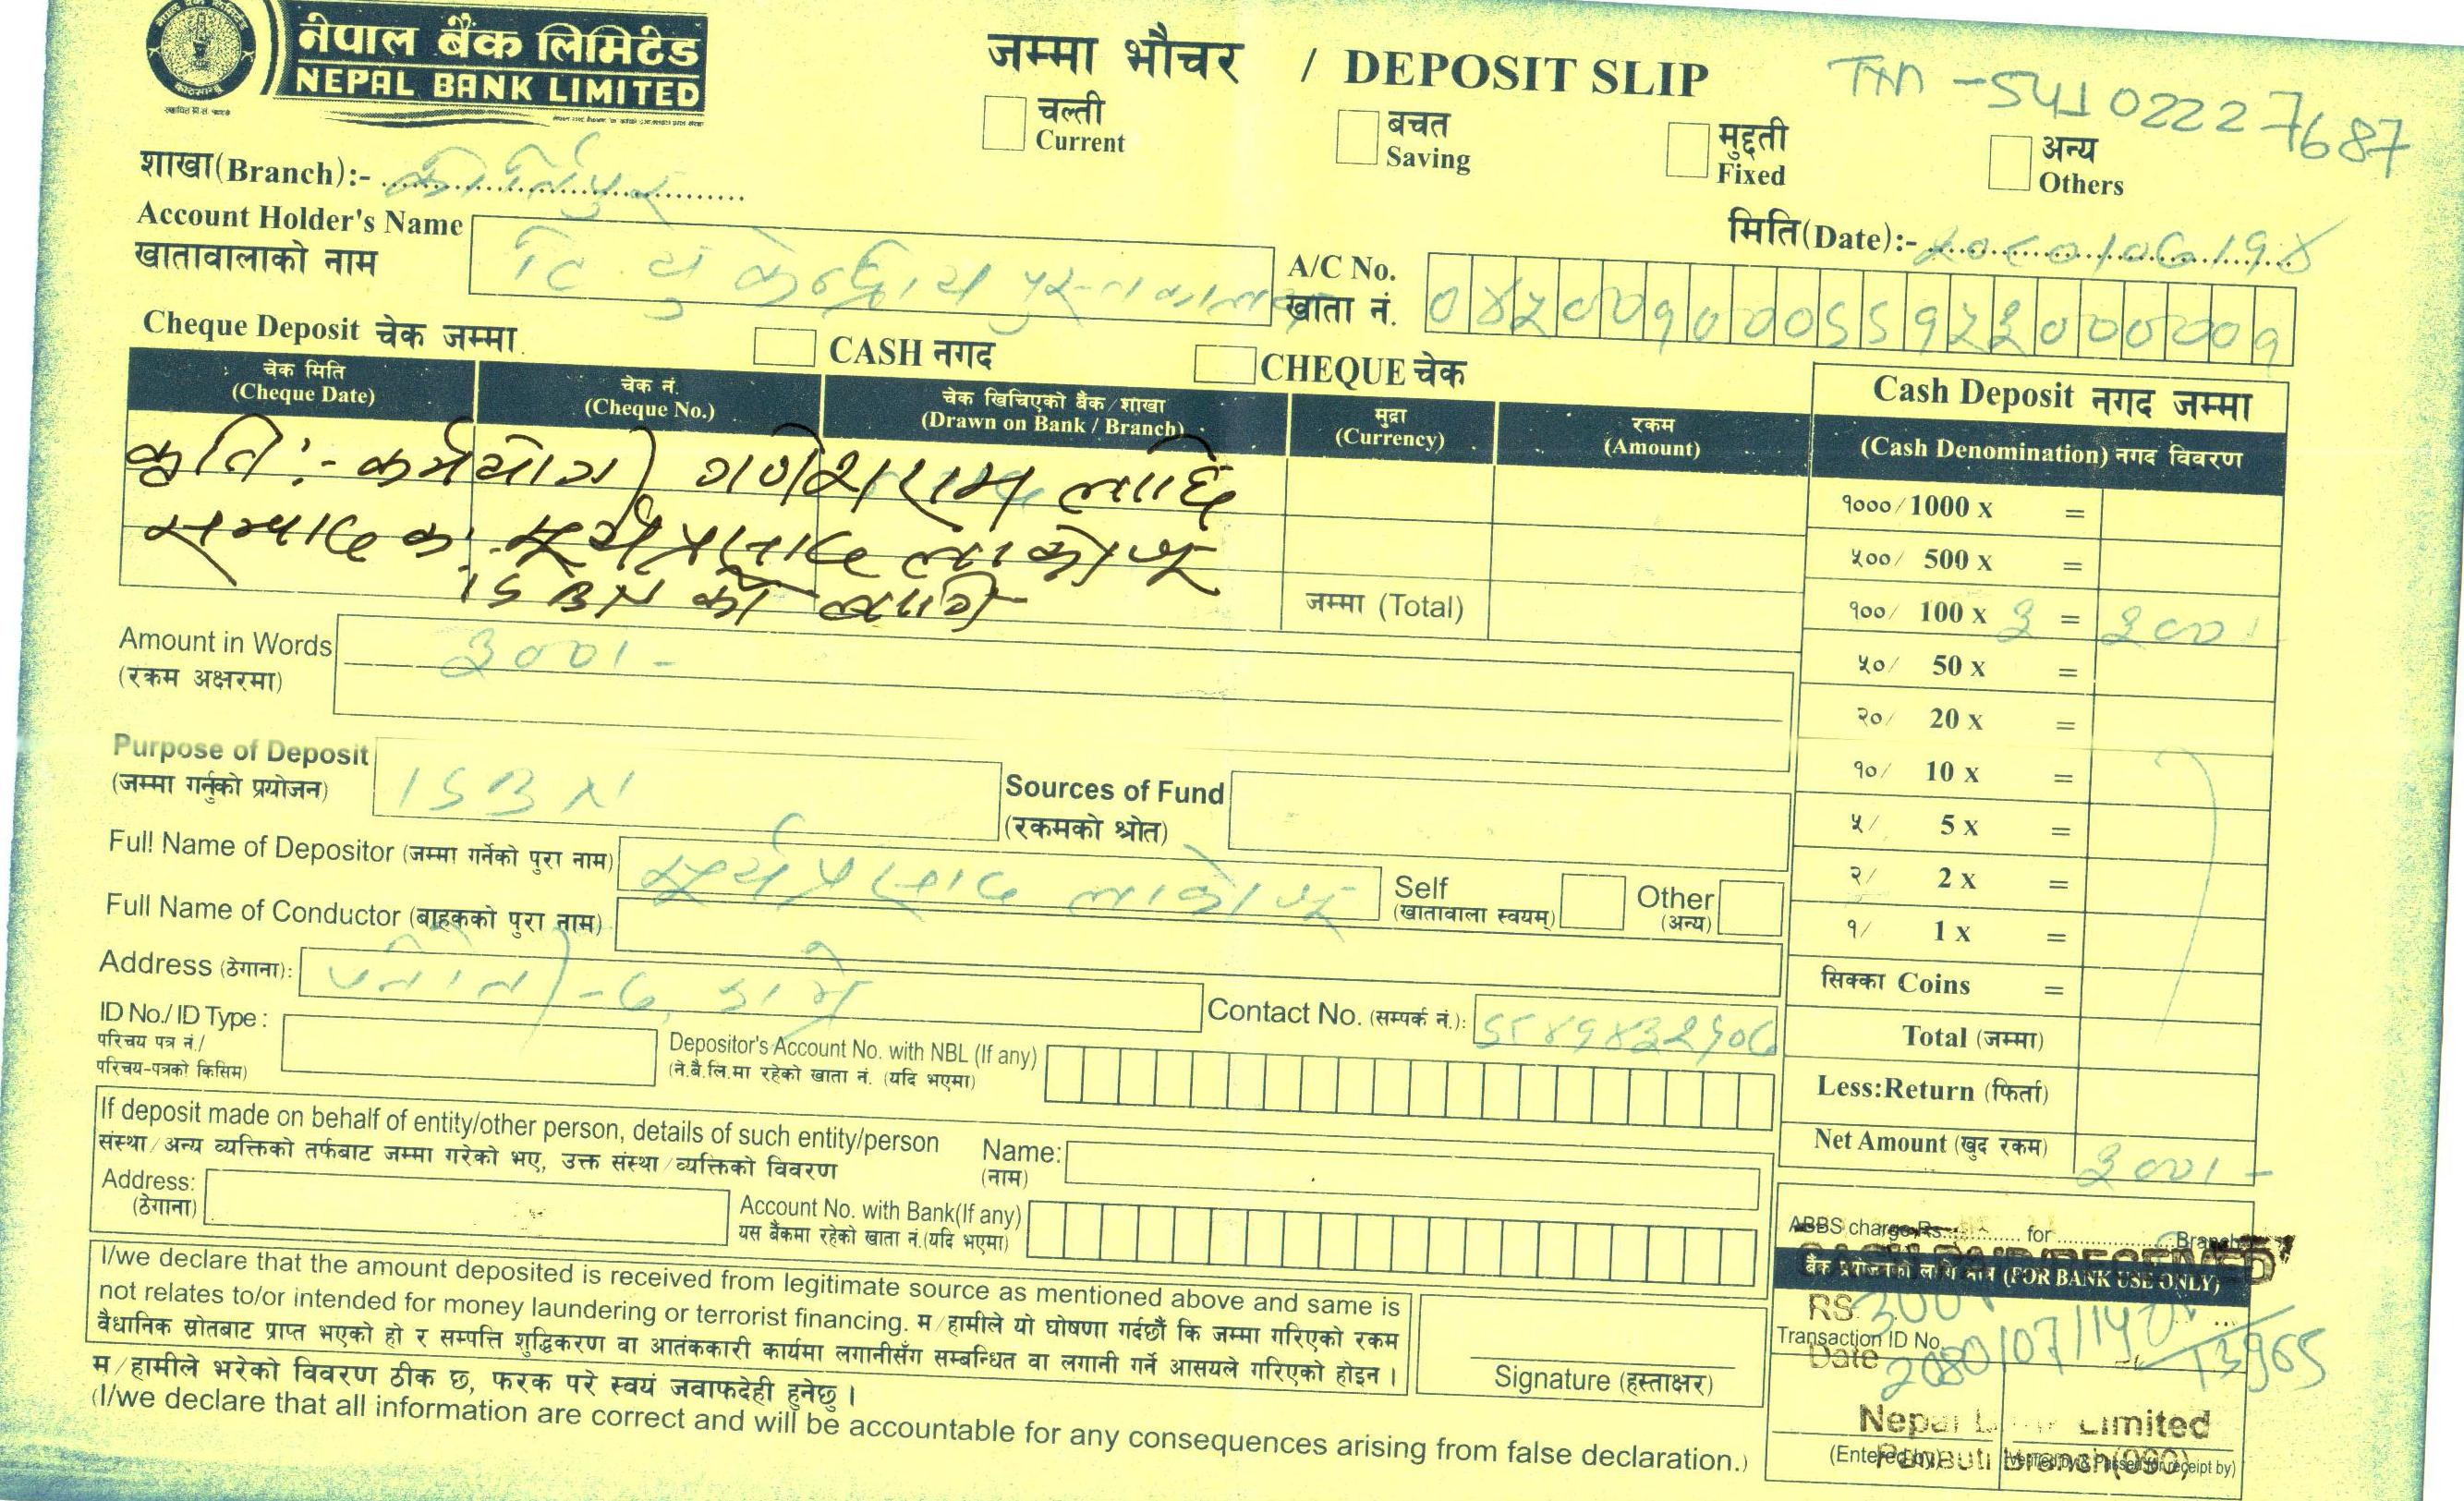 नेपाल बैंक लिमिटेड
NEPAL BANK LIMITED
जम्मा भौचर / DEPOSIT SLIP
TXn -54102227687
चल्ती
Current
बचत
Saving
मुद्दती
Fixed
अन्य
Others
शाखा(Branch):- कीर्तिपुर
मिति(Date):-
Account Holder's Name
खातावालाको नाम
त्रि. यु केन्द्रीय पुस्तकालय
A/C No.
खाता नं.
Cheque Deposit चेक जम्मा
CASH नगद
CHEQUE चेक
चेक मिति
(Cheque Date)
चेक नं.
(Cheque No.)
चेक खिचिएको बैंक/शाखा
(Drawn on Bank / Branch)
मुद्रा
(Currency)
रकम
(Amount)
कृति:- कर्मयोगी गणेशराम लाछि
सम्पादक:- सूर्यप्रसाद लाकोजू
ISBN को लागि
जम्मा (Total)
Cash Deposit नगद जम्मा
(Cash Denomination) नगद विवरण
१०००/1000 x =
५००/ 500 x =
१००/ 100 x ३ = ३००।
५०/ 50 x =
२०/ 20 x =
१०/ 10 x =
५/ 5 x =
२/ 2 x =
१/ 1 x =
सिक्का Coins =
Total (जम्मा)
Less:Return (फिर्ता)
Net Amount (खुद रकम) ३००।-
Amount in Words
(रकम अक्षरमा)
३००।-
Purpose of Deposit
(जम्मा गर्नुको प्रयोजन)
ISBN
Sources of Fund
(रकमको श्रोत)
Full Name of Depositor (जम्मा गर्नेको पुरा नाम) सूर्यप्रसाद लाकोजू
Self
(खातावाला स्वयम्)
Other
(अन्य)
Full Name of Conductor (बाहकको पुरा नाम)
Address (ठेगाना): पनौती -७, काभ्रे
Contact No. (सम्पर्क नं.):
ID No./ ID Type :
परिचय पत्र नं./
परिचय-पत्रको किसिम)
Depositor's Account No. with NBL (If any)
(ने.बै.लि.मा रहेको खाता नं. (यदि भएमा)
If deposit made on behalf of entity/other person, details of such entity/person
संस्था/अन्य व्यक्तिको तर्फबाट जम्मा गरेको भए, उक्त संस्था/व्यक्तिको विवरण
Name:
(नाम)
Address:
(ठेगाना)
Account No. with Bank(If any)
यस बैंकमा रहेको खाता नं.(यदि भएमा)
I/we declare that the amount deposited is received from legitimate source as mentioned above and same is
not relates to/or intended for money laundering or terrorist financing. म/हामीले यो घोषणा गर्दछौं कि जम्मा गरिएको रकम
वैधानिक स्रोतबाट प्राप्त भएको हो र सम्पत्ति शुद्धिकरण वा आतंककारी कार्यमा लगानीसँग सम्बन्धित वा लगानी गर्ने आसयले गरिएको होइन ।
म/हामीले भरेको विवरण ठीक छ, फरक परे स्वयं जवाफदेही हुनेछु ।
(I/we declare that all information are correct and will be accountable for any consequences arising from false declaration.)
Signature (हस्ताक्षर)
ABBS charge Rs. for Branch
बैंक प्रयोजनको लागि मात्र (FOR BANK USE ONLY)
RS 300
Transaction ID No.
Date 2080/07/14
13965
Nepal Limited
Panauti Branch(090)
(Entered by)
(Verified by & Passed for receipt by)